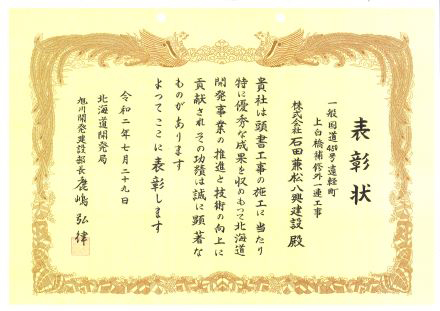 表彰状
一般国道450号遠軽町
上白橋補修外一連工事
株式会社石田兼松八興建設 殿
貴社は頭書工事の施工に当たり
特に優秀な成果を収めもって北海道
開発事業の推進と技術の向上に
貢献されその功績は誠に顕著な
ものがあります
よってここに表彰します
令和二年七月二十九日
北海道開発局
旭川開発建設部長 鹿嶋弘律